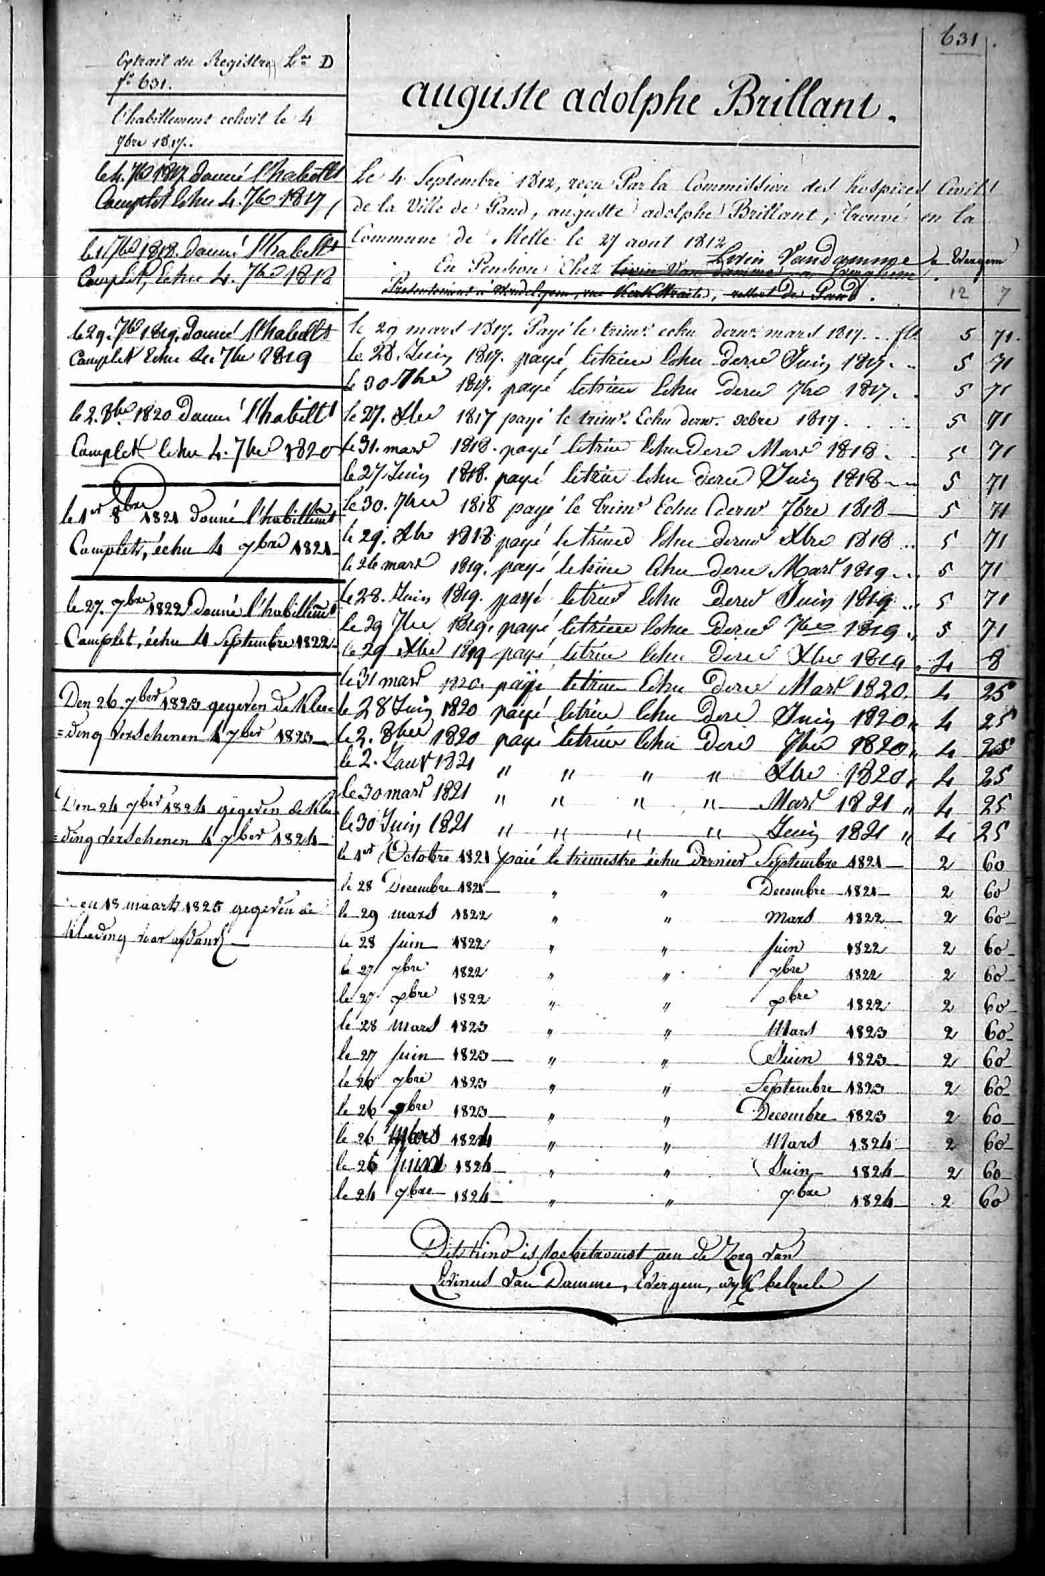 631.
Extrait du Registre Lra D
fo 631.
l'habillement echoit le 4
7bre 1817.
le 4. 7bre 1817 donné l'habillt
Complet Echu 4. 7bre 1817
le 1 7bre 1818. donné l'habillt
Complet, Echu 4. 7bre 1818
le 29. 7bre 1819. Donné l'habillt
Complet Echu 4. 7bre 1819
le 2. 8bre 1820 Donné l'habillt
Complet Echu 4. 7bre 1820
le 1er 8bre 1821 donné l'habillemt
Complet, échu 4 7bre 1821
le 27. 7bre 1822 Donné l'habillemt
Complet, échu 4 Septembre 1822
Den 26 7ber 1823 gegeven de Klee-
=ding Verschenen 4 7ber 1823
Den 24 7ber 1824 gegeven de Klee
=ding verschenen 4 7ber 1824
den 18 maarts 1825 gegeven de
Kleeding voor
auguste adolphe Brillant.
Le 4 Septembre 1812, reçu Par la Commission des hospices Civils
de la Ville de Gand, auguste adolphe Brillant, trouvé en la
Commune de Melle le 27 aout 1812
Livin Vandamme a Evergem
En Pension Chez Livin Van Damme a Everghem
12 7
le 29 mars 1817. Payé le trimr echu dernr mars 1817... fl. 5 71.
le 28. Juin 1817. payé letrim Echu derer Juin 1817. 5 71
le 30 7bre 1817. payé letrim Echu derer 7bre 1817. 5 71
le 27. Xbre 1817 payé le trimr. Echu dernr. xbre 1817. 5 71
le 31. mars 1818. payé letrim Echu dere Mars 1818 5 71
le 27 Juin 1818. payé letrim Echu dere Juin 1818 5 71
le 30. 7bre 1818 payé le trimr Echu dernr 7bre 1818 5 71
le 29. Xbre 1818 payé letrim Echu dernr Xbre 1818 5 71
le 26 mars 1819. payé letrim Echu dere Mars 1819 5 71
le 28. Juin 1819. payé letrim Echu Derer Juin 1819 5 71
le 29 7bre 1819. payé letrim Echu Derer 7bre 1819 5 71
le 29 Xbre 1819 payé letrim Echu Dere Xbre 1819 4 8
le 31 mars 1820. payé letrim Echu Dere Mars 1820. 4 25
le 28 Juin 1820 payé letrim Echu Dere Juin 1820 " 4 25
le 2. 8bre 1820 payé letrim Echu Dere 7bre 1820 " 4 25
le 2. Janv 1821 " " " " Xbre 1820 " 4 25
le 30 mars 1821 " " " " Mars 1821 " 4 25
le 30 Juin 1821 " " " " Juin 1821 " 4 25
le 1er Octobre 1821 paié le trimestre échu Dernier Septembre 1821 2 60
le 28 Decembre 1821 " " Decembre 1821 2 60
le 29 mars 1822 " " Mars 1822 2 60
le 28 Juin 1822 " " Juin 1822 2 60
le 27 7bre 1822 " " 7bre 1822 2 60
le 27 xbre 1822 " " xbre 1822 2 60
le 28 Mars 1823 " " Mars 1823 2 60
le 27 Juin 1823 " " Juin 1823 2 60
le 26 7bre 1823 " " Septembre 1823 2 60
le 26 xbre 1823 " " Decembre 1823 2 60
le 26 Mars 1824 " " Mars 1824 2 60
le 25 Juin 1824 " " Juin 1824 2 60
le 24 7bre 1824 " " 7bre 1824 2 60
Dit Kind is toebetrouwt aen de Zorg van
Livinus Van Damme, Evergem, wyk belzeele